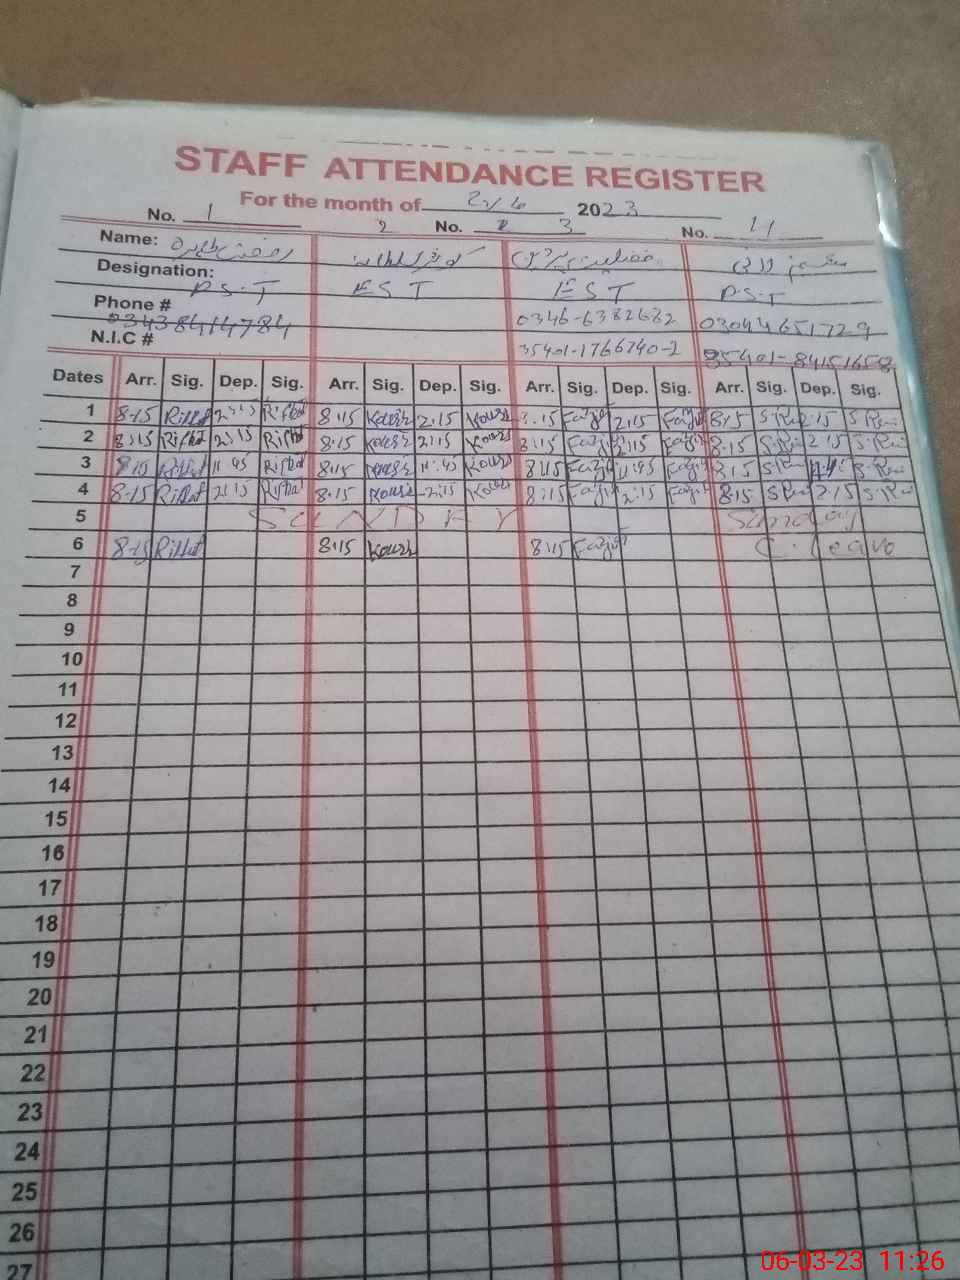 STAFF ATTENDANCE REGISTER
For the month of مارچ 2023
No. 1 2 No. 3 No. 4
Name: رفعت طاہرہ کوثر سلطانہ فضیلت پروین
Designation: P.S.T EST EST P.S.T
Phone # 03438414784 0346-6382682 03044651729
N.I.C # 35401-1766740-2 35401-84151658
Dates Arr. Sig. Dep. Sig. Arr. Sig. Dep. Sig. Arr. Sig. Dep. Sig. Arr. Sig. Dep. Sig.
1 8:15 Riffat 2:15 Riffat 8:15 Kousr 2:15 Kousr 8:15 2:15 8:15 2:15
2 8:15 Riffat 2:15 Riffat 8:15 Kousr 2:15 Kousr 8:15 2:15 8:15 2:15
3 8:15 Riffat 11:45 Riffat 8:15 Kousr 11:45 Kousr 8:15 11:45 8:15 11:45
4 8:15 Riffat 2:15 Riffat 8:15 Kousr 2:15 Kousr 8:15 2:15 8:15 2:15
5 SUNDAY Sunday
6 8:15 Riffat 8:15 Kousr 8:15 C. leave
7
8
9
10
11
12
13
14
15
16
17
18
19
20
21
22
23
24
25
26
27
06-03-23 11:26